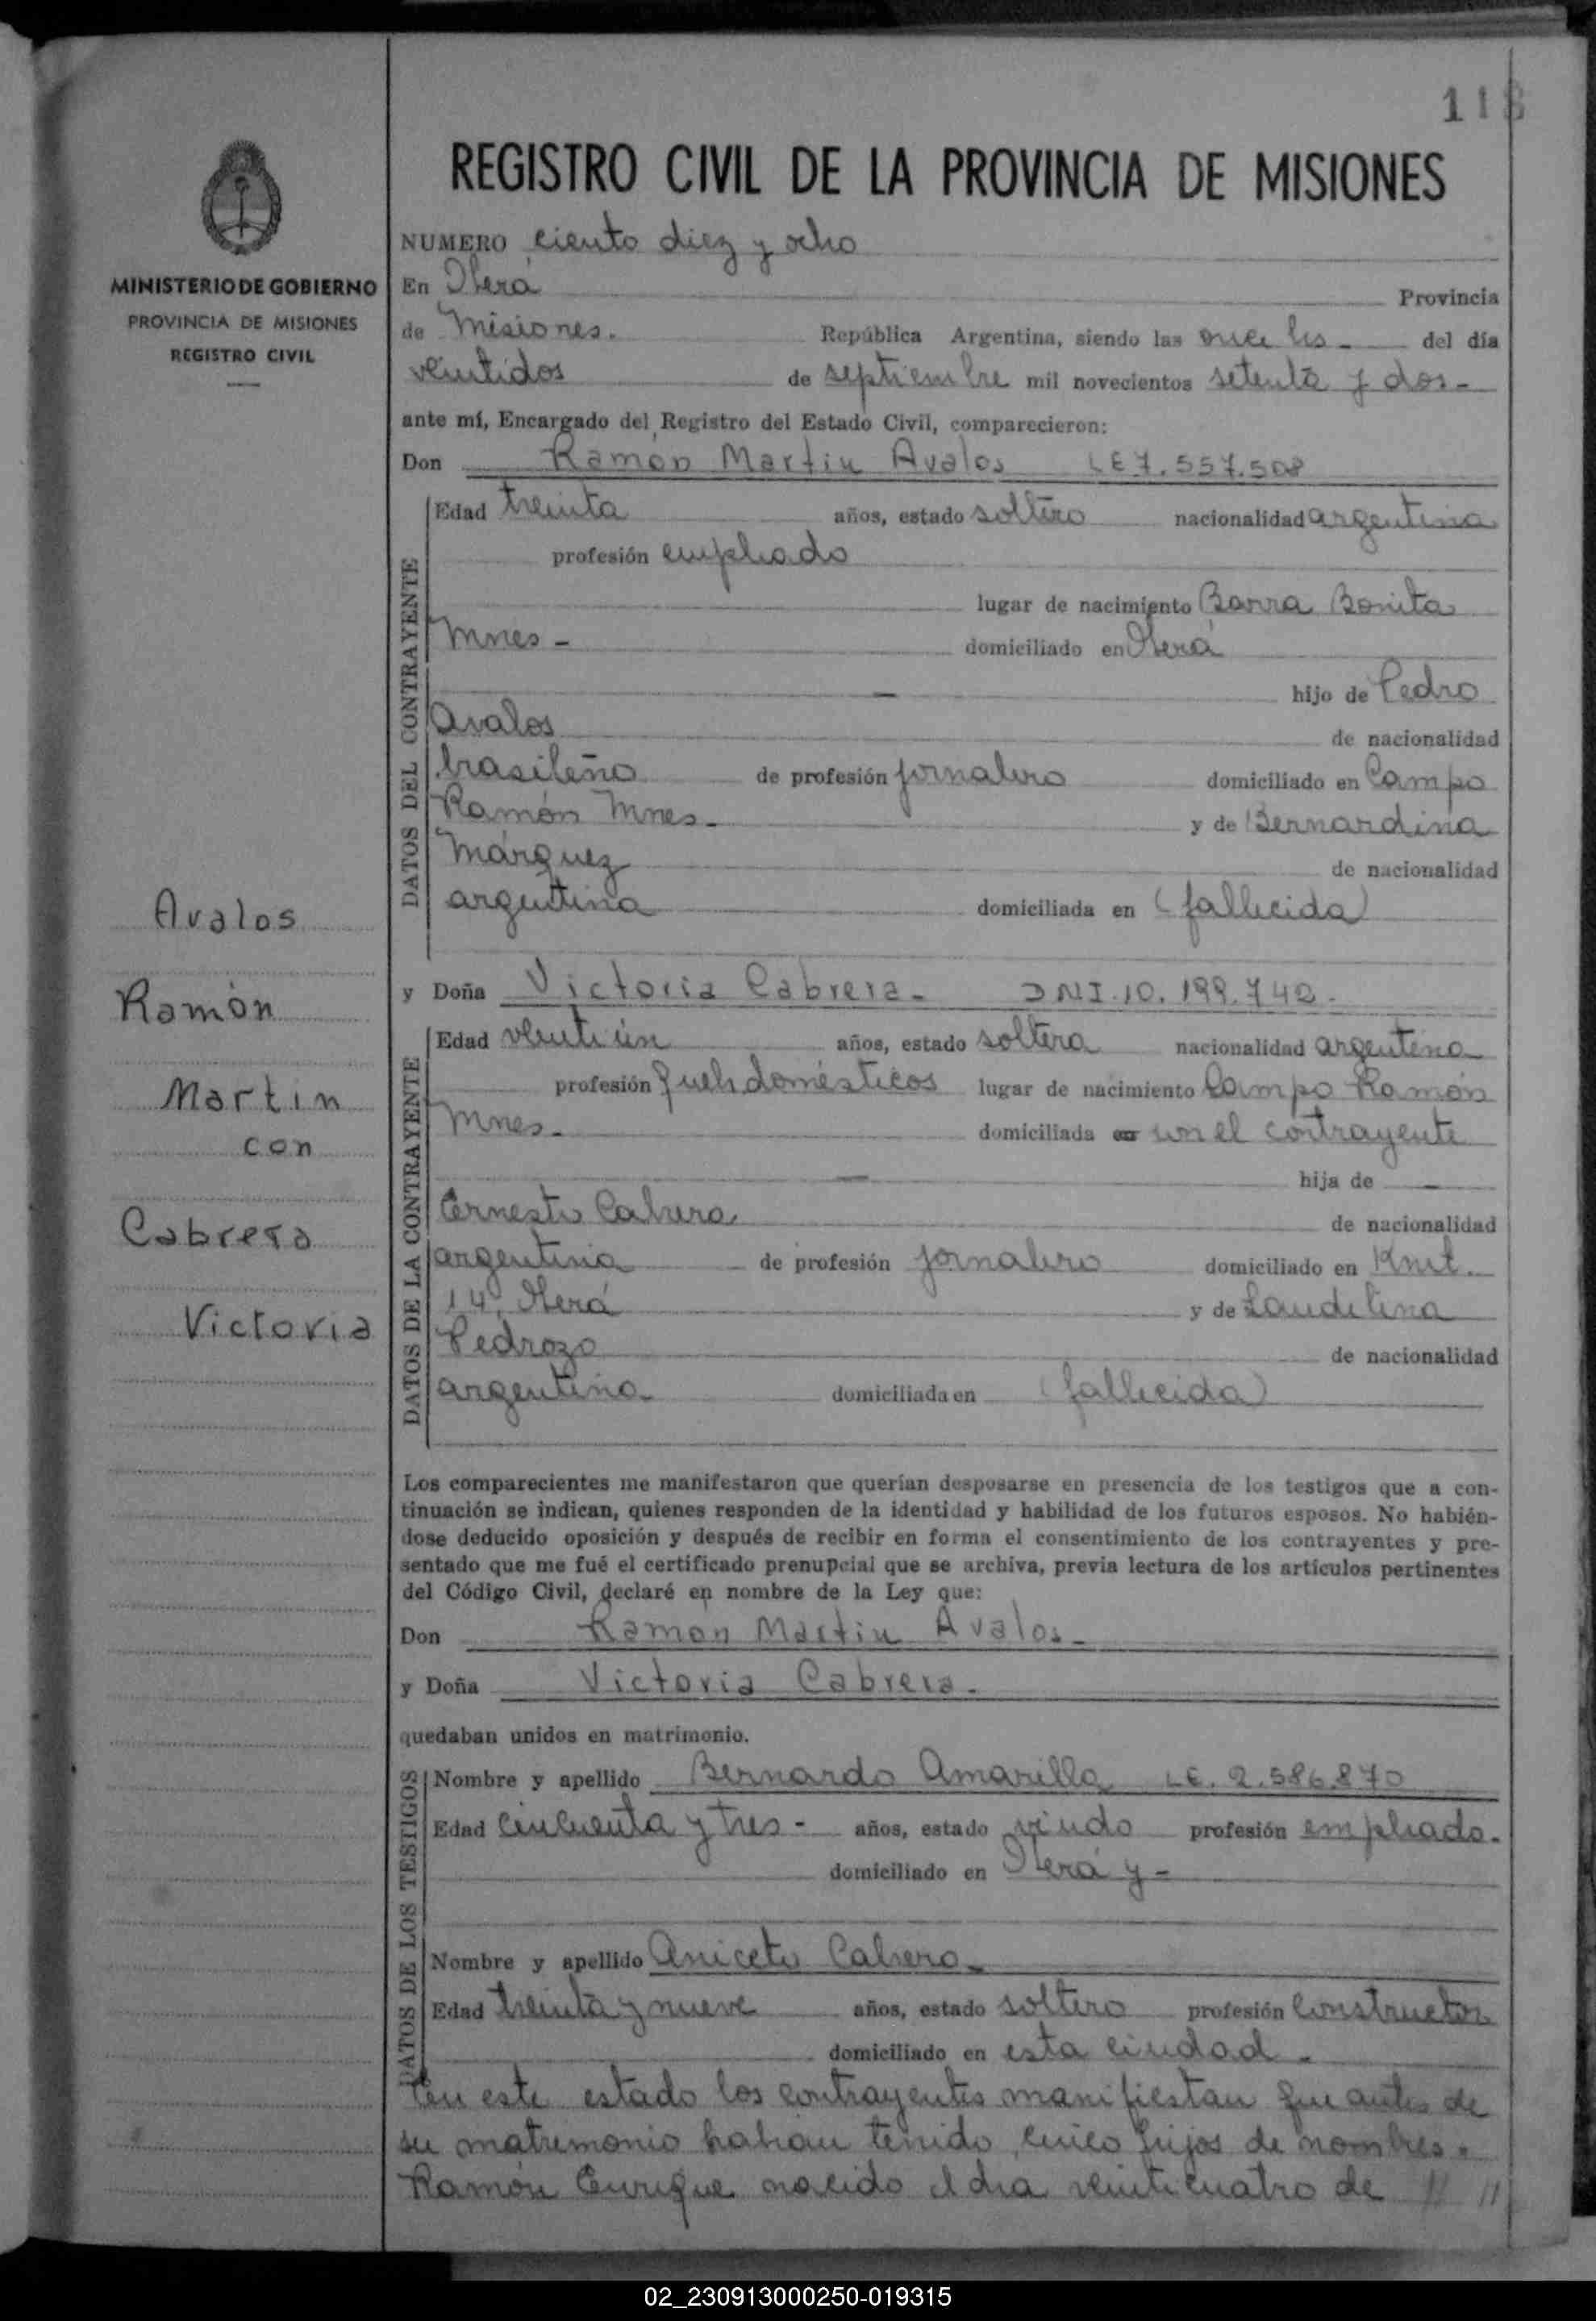 118
REGISTRO CIVIL DE LA PROVINCIA DE MISIONES
MINISTERIO DE GOBIERNO
PROVINCIA DE MISIONES
REGISTRO CIVIL
NUMERO ciento diez y ocho
En Oberá Provincia
de Misiones. República Argentina, siendo las once hs - del día
veintidos de septiembre mil novecientos setenta y dos -
ante mí, Encargado del Registro del Estado Civil, comparecieron:
Don Ramon Martin Avalos LE 7.557.508
DATOS DEL CONTRAYENTE
Edad treinta años, estado soltero nacionalidad argentina
profesión empleado
lugar de nacimiento Barra Bonita
Mnes - domiciliado en Oberá
— hijo de Pedro
Avalos de nacionalidad
brasileño de profesión jornalero domiciliado en Campo
Ramón Mnes - y de Bernardina
Márquez de nacionalidad
argentina domiciliada en (fallecida)
y Doña Victoria Cabrera - DNI. 10.199.742.
DATOS DE LA CONTRAYENTE
Edad veintiún años, estado soltera nacionalidad argentina
profesión queh. domésticos lugar de nacimiento Campo Ramón
Mnes - domiciliada en con el contrayente
— hija de —
Ernesto Cabrera de nacionalidad
argentina de profesión jornalero domiciliado en Kmt.
14, Oberá y de Laudelina
Pedrozo de nacionalidad
argentina domiciliada en (fallecida)
Avalos
Ramón
Martin
con
Cabrera
Victoria
Los comparecientes me manifestaron que querían desposarse en presencia de los testigos que a con-
tinuación se indican, quienes responden de la identidad y habilidad de los futuros esposos. No habién-
dose deducido oposición y después de recibir en forma el consentimiento de los contrayentes y pre-
sentado que me fué el certificado prenupcial que se archiva, previa lectura de los artículos pertinentes
del Código Civil, declaré en nombre de la Ley que:
Don Ramon Martin Avalos -
y Doña Victoria Cabrera -
quedaban unidos en matrimonio.
DATOS DE LOS TESTIGOS
Nombre y apellido Bernardo Amarilla LE. 2.586.870
Edad cincuenta y tres - años, estado viudo profesión empleado.
domiciliado en Oberá y -
Nombre y apellido Aniceto Cabrera -
Edad treinta y nueve años, estado soltero profesión constructor
domiciliado en esta ciudad -
En este estado los contrayentes manifiestan que antes de
su matrimonio habían tenido cinco hijos de nombres =
Ramón Enrique nacido el dia veinticuatro de // //
02_230913000250-019315